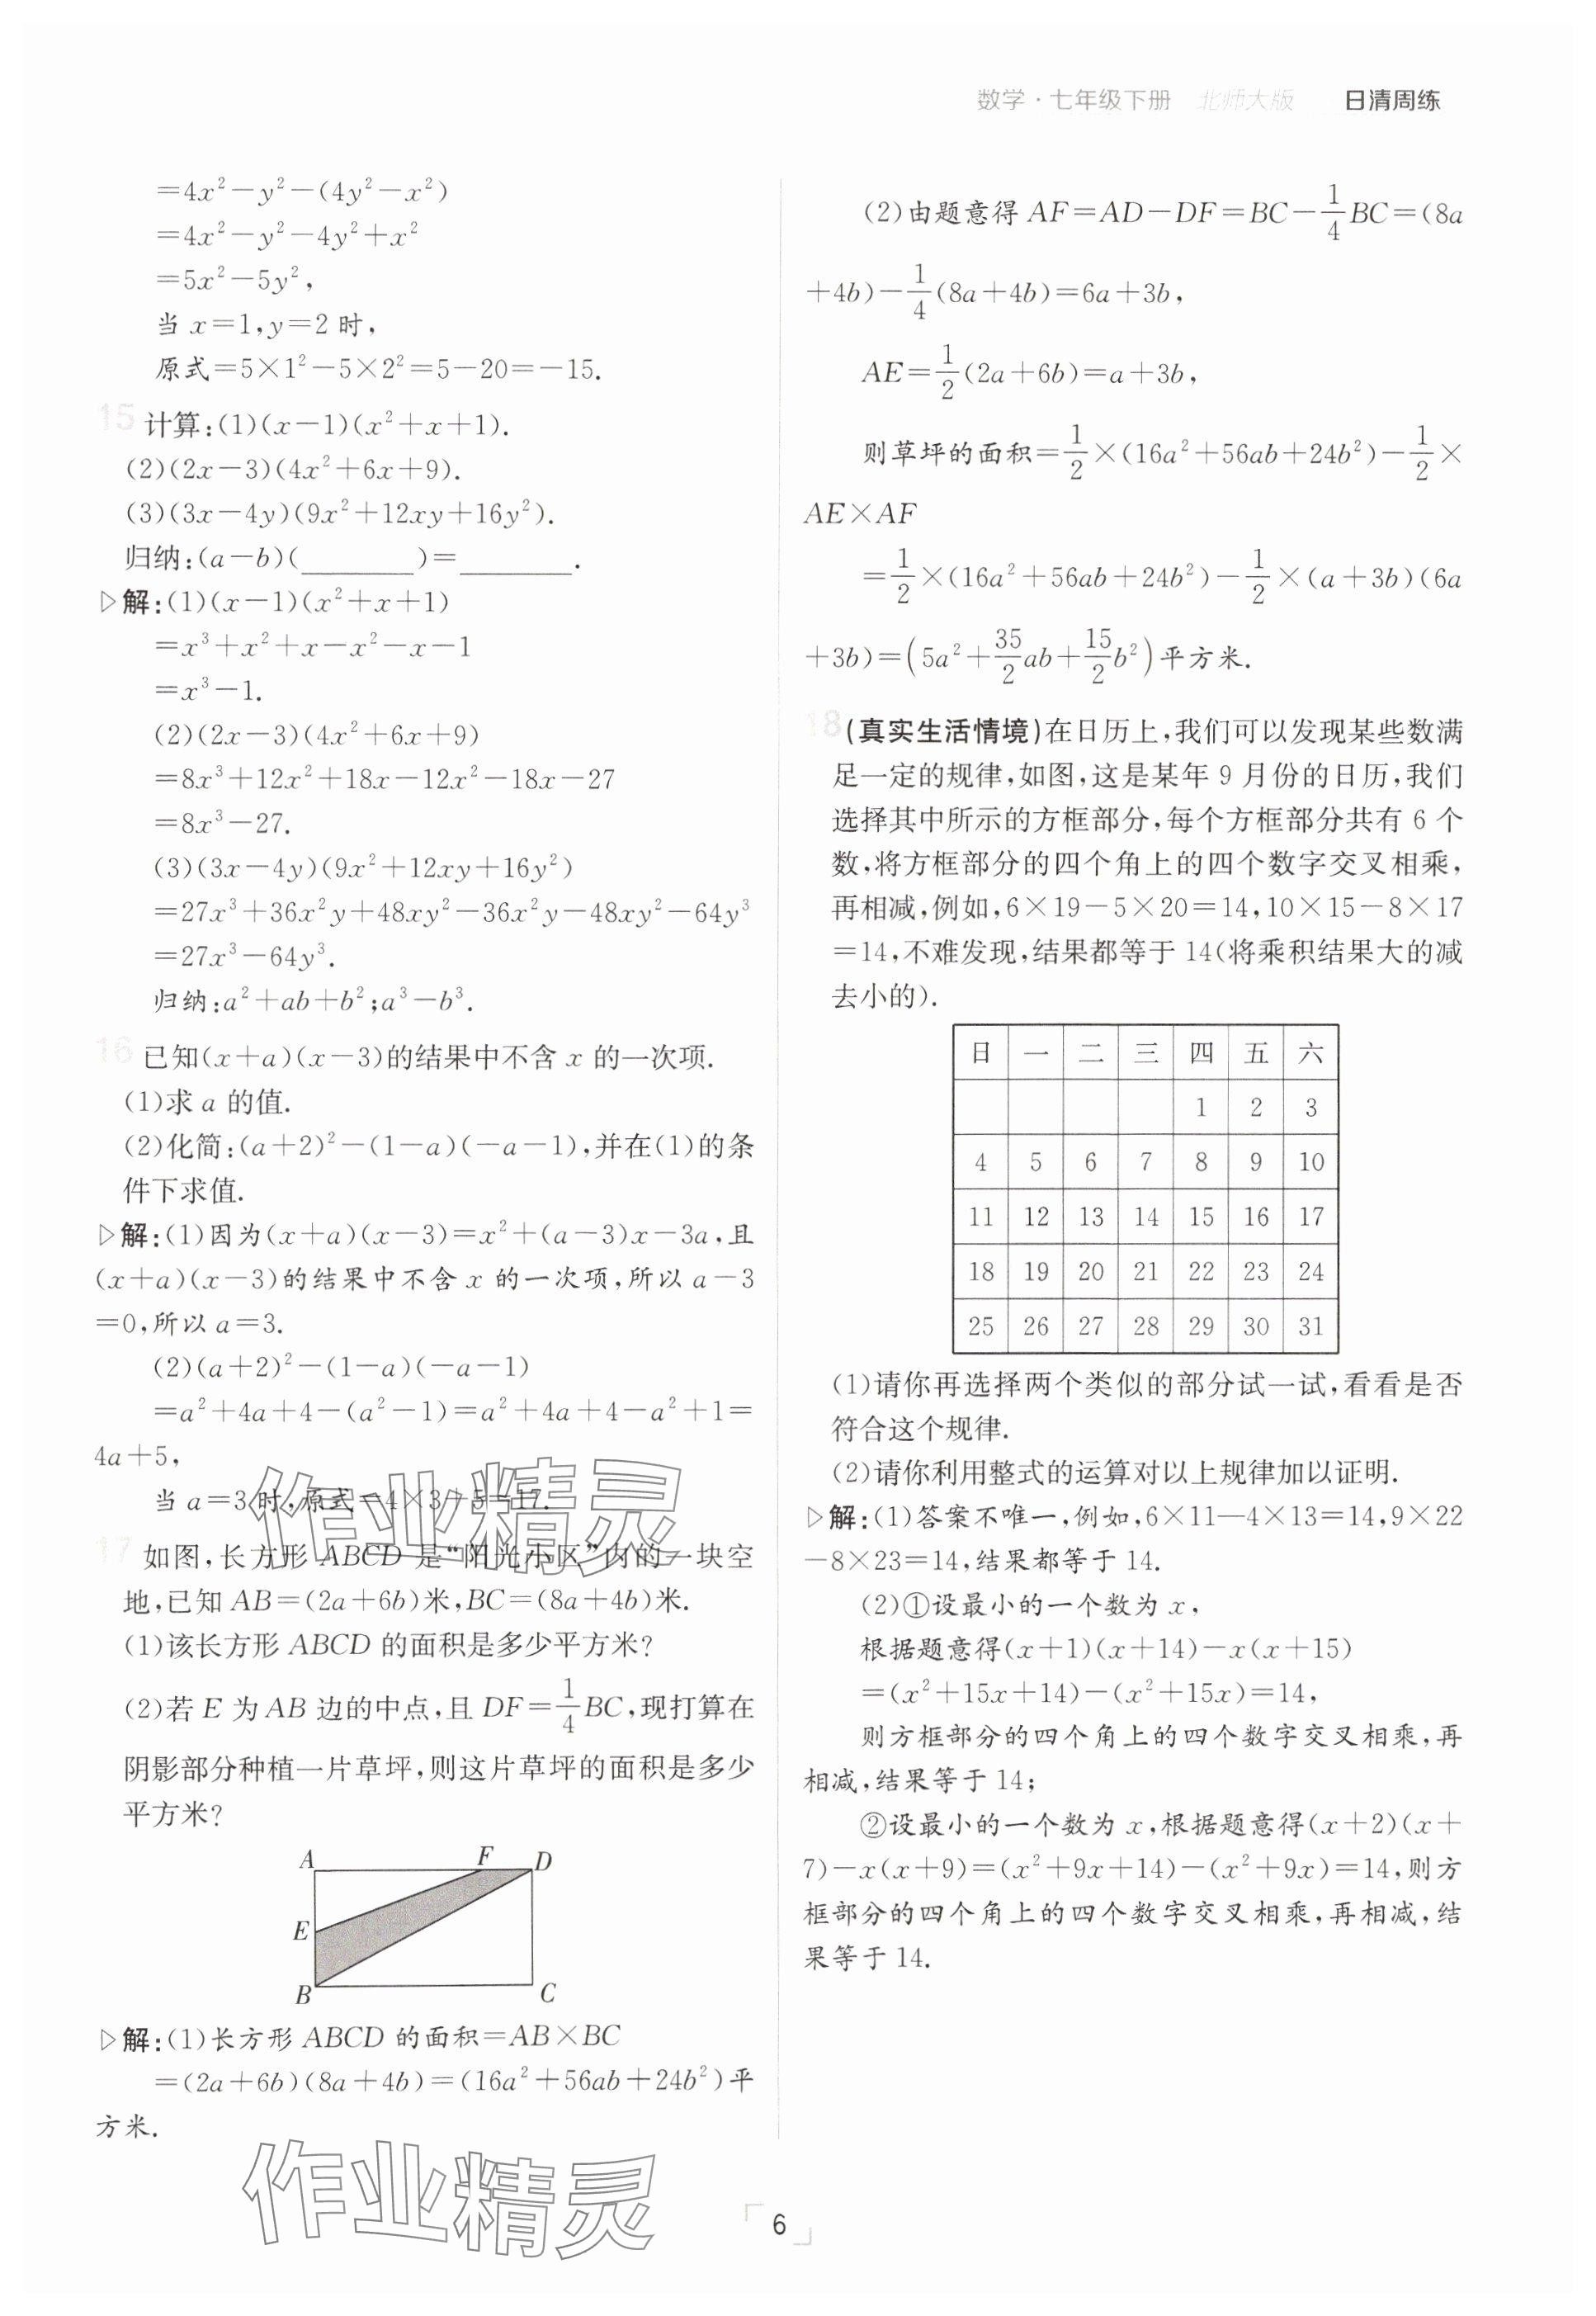 数学·七年级下册 北师大版 日清周练
=4x²-y²-(4y²-x²)
=4x²-y²-4y²+x²
=5x²-5y²,
当 x=1,y=2 时,
原式=5×1²-5×2²=5-20=-15.
15 计算:(1)(x-1)(x²+x+1).
(2)(2x-3)(4x²+6x+9).
(3)(3x-4y)(9x²+12xy+16y²).
归纳:(a-b)(________)=________.
▷解:(1)(x-1)(x²+x+1)
=x³+x²+x-x²-x-1
=x³-1.
(2)(2x-3)(4x²+6x+9)
=8x³+12x²+18x-12x²-18x-27
=8x³-27.
(3)(3x-4y)(9x²+12xy+16y²)
=27x³+36x²y+48xy²-36x²y-48xy²-64y³
=27x³-64y³.
归纳:a²+ab+b²;a³-b³.
16 已知(x+a)(x-3)的结果中不含 x 的一次项.
(1)求 a 的值.
(2)化简:(a+2)²-(1-a)(-a-1),并在(1)的条
件下求值.
▷解:(1)因为(x+a)(x-3)=x²+(a-3)x-3a,且
(x+a)(x-3)的结果中不含 x 的一次项,所以 a-3
=0,所以 a=3.
(2)(a+2)²-(1-a)(-a-1)
=a²+4a+4-(a²-1)=a²+4a+4-a²+1=
4a+5,
当 a=3 时,原式=4×3+5=17.
17 如图,长方形 ABCD 是“阳光小区”内的一块空
地,已知 AB=(2a+6b)米,BC=(8a+4b)米.
(1)该长方形 ABCD 的面积是多少平方米?
(2)若 E 为 AB 边的中点,且 DF=1/4BC,现打算在
阴影部分种植一片草坪,则这片草坪的面积是多少
平方米?
A F D
E
B C
▷解:(1)长方形 ABCD 的面积=AB×BC
=(2a+6b)(8a+4b)=(16a²+56ab+24b²)平
方米.
(2)由题意得 AF=AD-DF=BC-1/4BC=(8a
+4b)-1/4(8a+4b)=6a+3b,
AE=1/2(2a+6b)=a+3b,
则草坪的面积=1/2×(16a²+56ab+24b²)-1/2×
AE×AF
=1/2×(16a²+56ab+24b²)-1/2×(a+3b)(6a
+3b)=(5a²+35/2ab+15/2b²)平方米.
18 (真实生活情境)在日历上,我们可以发现某些数满
足一定的规律,如图,这是某年 9 月份的日历,我们
选择其中所示的方框部分,每个方框部分共有 6 个
数,将方框部分的四个角上的四个数字交叉相乘,
再相减,例如,6×19-5×20=14,10×15-8×17
=14,不难发现,结果都等于 14(将乘积结果大的减
去小的).
日 一 二 三 四 五 六
1 2 3
4 5 6 7 8 9 10
11 12 13 14 15 16 17
18 19 20 21 22 23 24
25 26 27 28 29 30 31
(1)请你再选择两个类似的部分试一试,看看是否
符合这个规律.
(2)请你利用整式的运算对以上规律加以证明.
▷解:(1)答案不唯一,例如,6×11—4×13=14,9×22
-8×23=14,结果都等于 14.
(2)①设最小的一个数为 x,
根据题意得(x+1)(x+14)-x(x+15)
=(x²+15x+14)-(x²+15x)=14,
则方框部分的四个角上的四个数字交叉相乘,再
相减,结果等于 14;
②设最小的一个数为 x,根据题意得(x+2)(x+
7)-x(x+9)=(x²+9x+14)-(x²+9x)=14,则方
框部分的四个角上的四个数字交叉相乘,再相减,结
果等于 14.
作业精灵
作业精灵
6